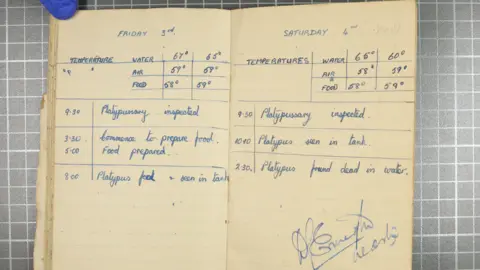 FRIDAY 3rd
TEMPERATURE WATER 67° 65°
" " AIR 57° 57°
FOOD 58° 59°
9.30 Platypussary inspected
3.30 Commence to prepare food.
5.00 Food prepared.
9.00 Platypus food & seen in tank
SATURDAY 4th
TEMPERATURES WATER 65° 60°
AIR 58° 59°
FOOD 58° 59°
9.30 Platypussary inspected.
10.10 Platypus seen in tank.
2.30. Platypus found dead in water.